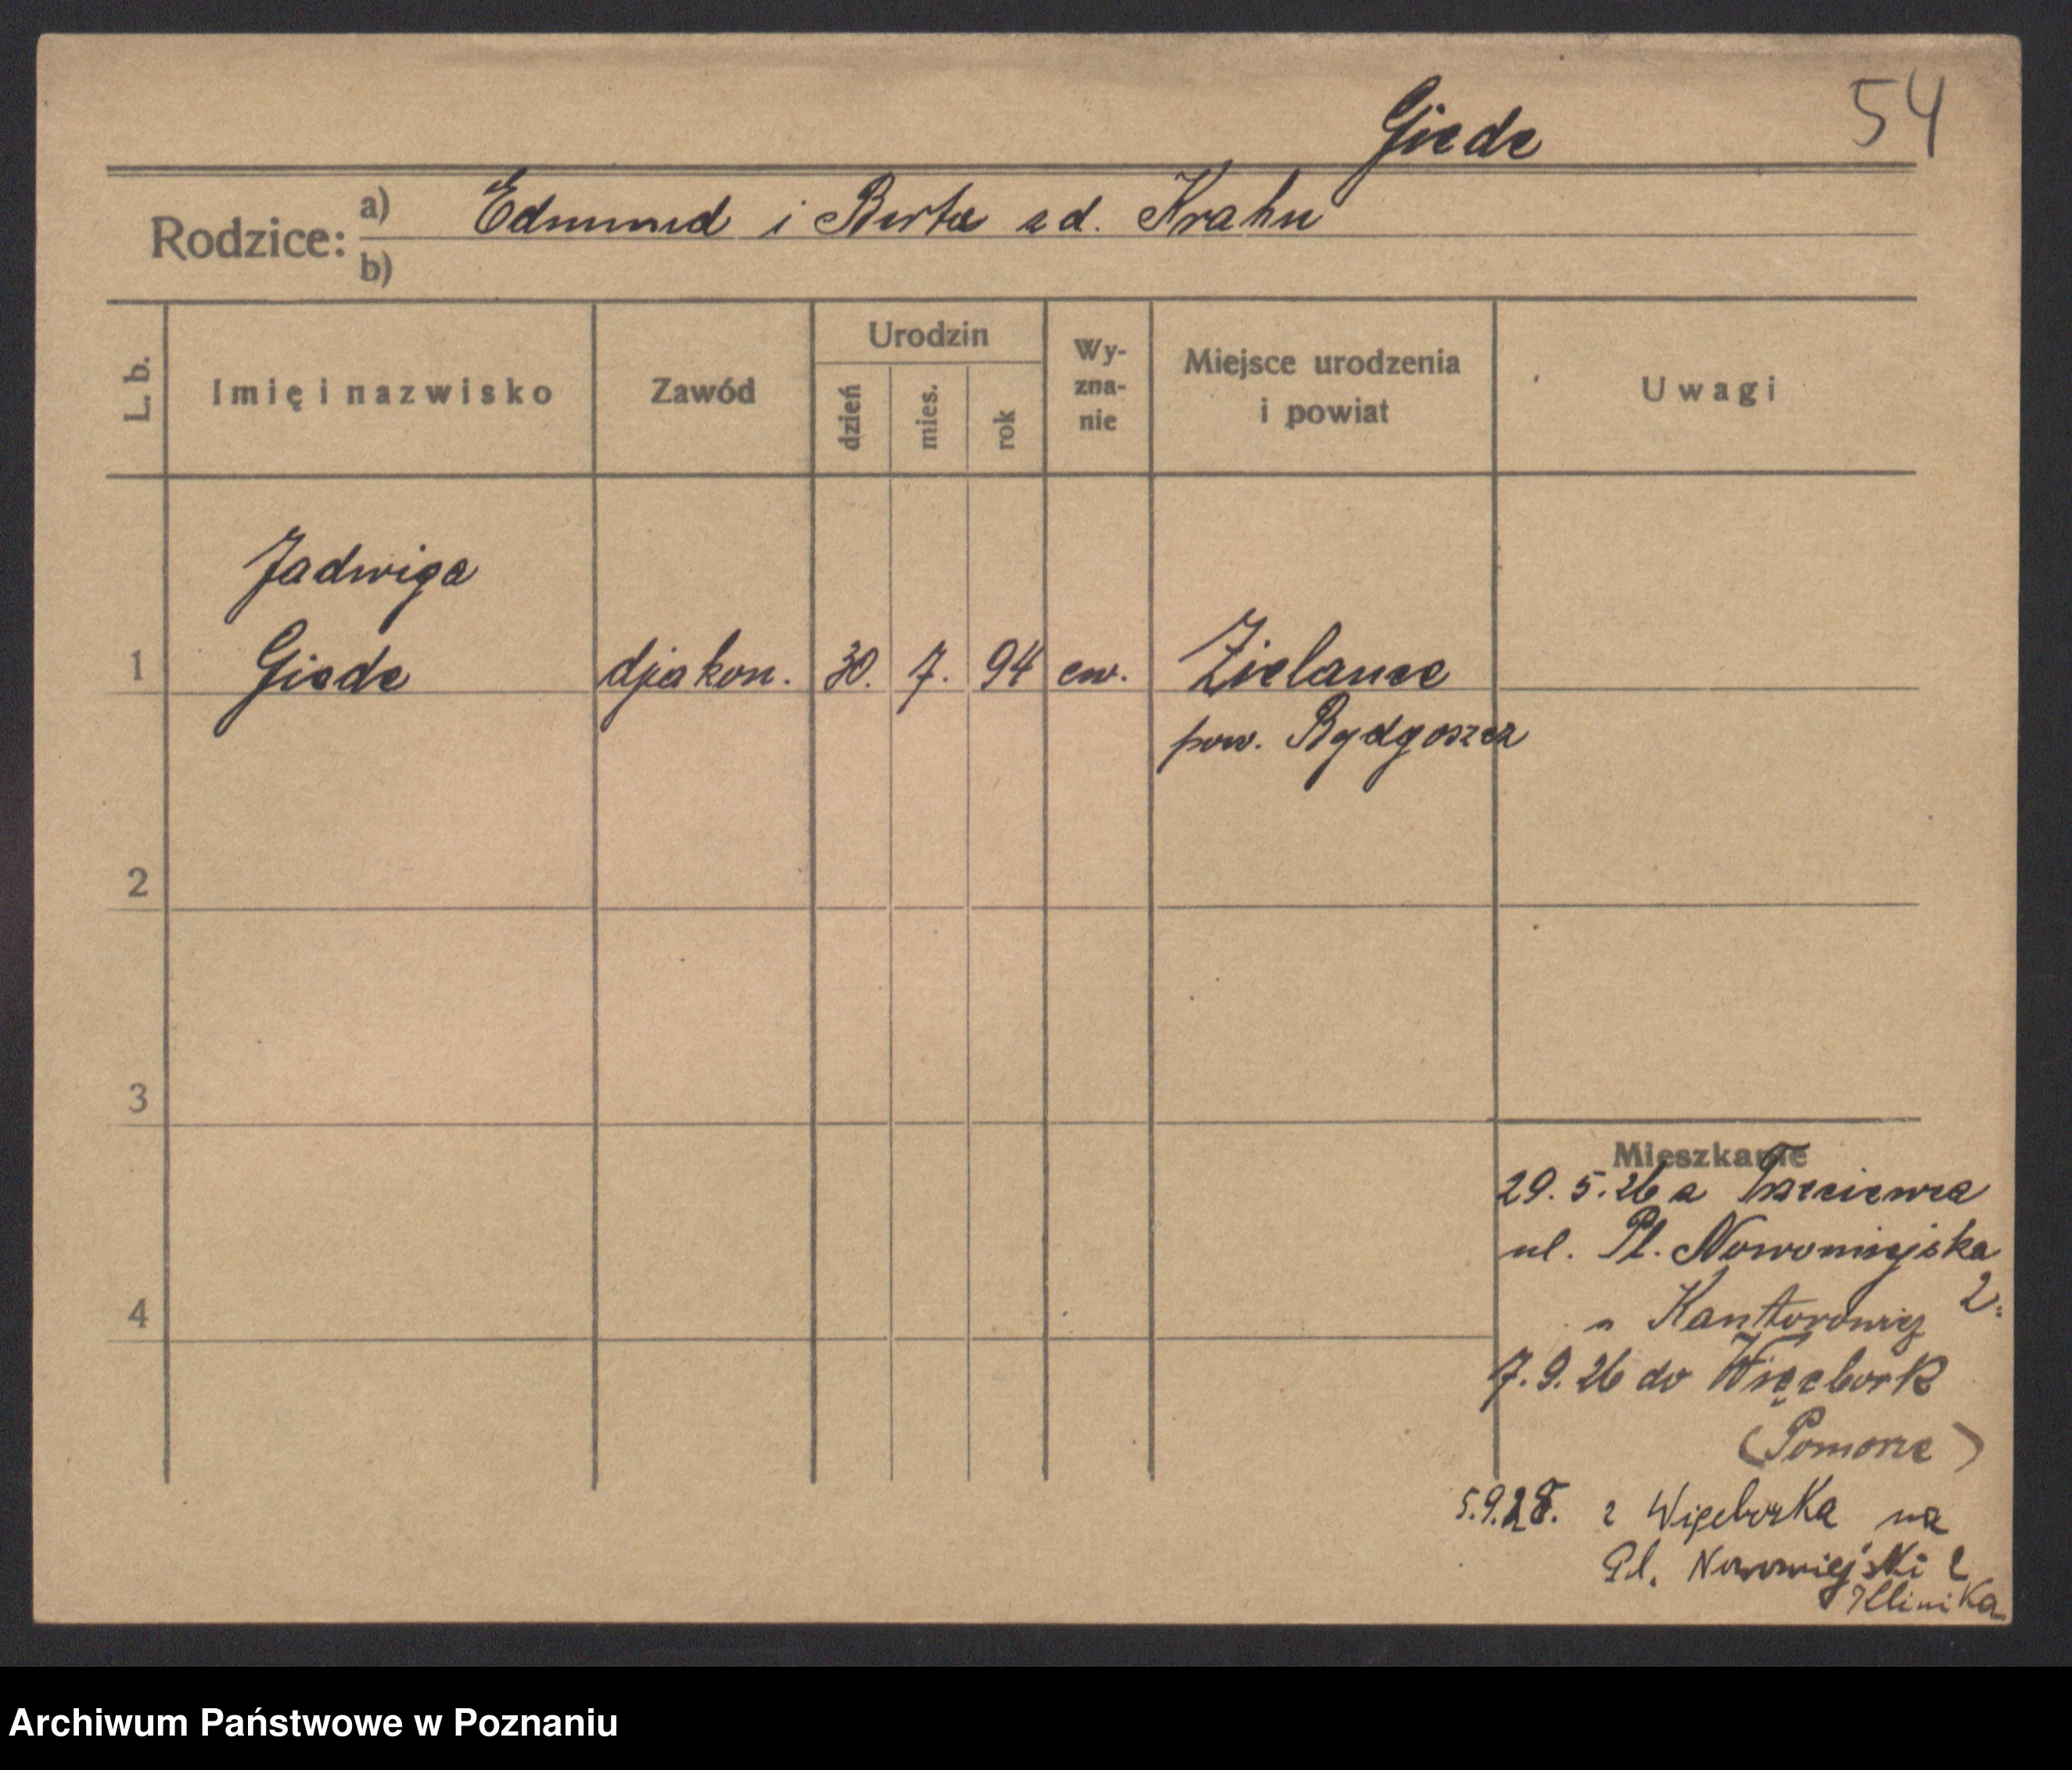 Giede 54
Rodzice: a) Edmund i Berta zd. Krahn
b)
L. b. Imię i nazwisko Zawód Urodzin dzień mies. rok Wy-zna-nie Miejsce urodzenia i powiat Uwagi
Jadwiga
1 Giede djakon. 30. 7. 94 ew.
pow. Bydgoszcz
2
3
Mieszkanie
29. 5. 26 z
ul. Pl. Nowomiejska
4 Kantorowicz 2.
7. 9. 26 do Więcbork
(Pomorze)
5.9.28. z Więcborka na
Pl. Nowomiejski 2
Klinika
Archiwum Państwowe w Poznaniu